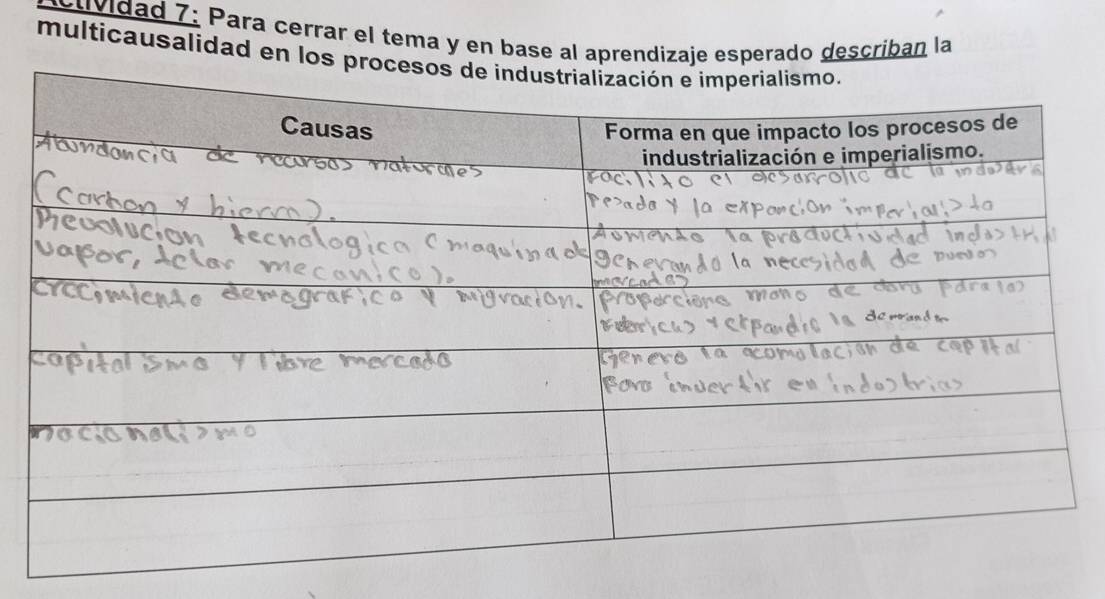 Actividad 7: Para cerrar el tema y en base al aprendizaje esperado describan la
multicausalidad en los procesos de industrialización e imperialismo.
Causas
Forma en que impacto los procesos de
industrialización e imperialismo.
Abundancia de recursos naturales
(carbon y hierro).
Facilito el desarrollo de la industria
Pesada y la expancion imperialista
Revolucion tecnologica (maquina de
vapor, telar mecanico).
Aumento la productividad industrial
generando la necesidad de nuevos
mercados
Crecimiento demografico y migracion.
Proporciono mano de obra para las
fabricas y expandio la demanda
capitalismo y libre mercado
Genero la acomulacion de capital
Para invertir en industrias
nacionalismo